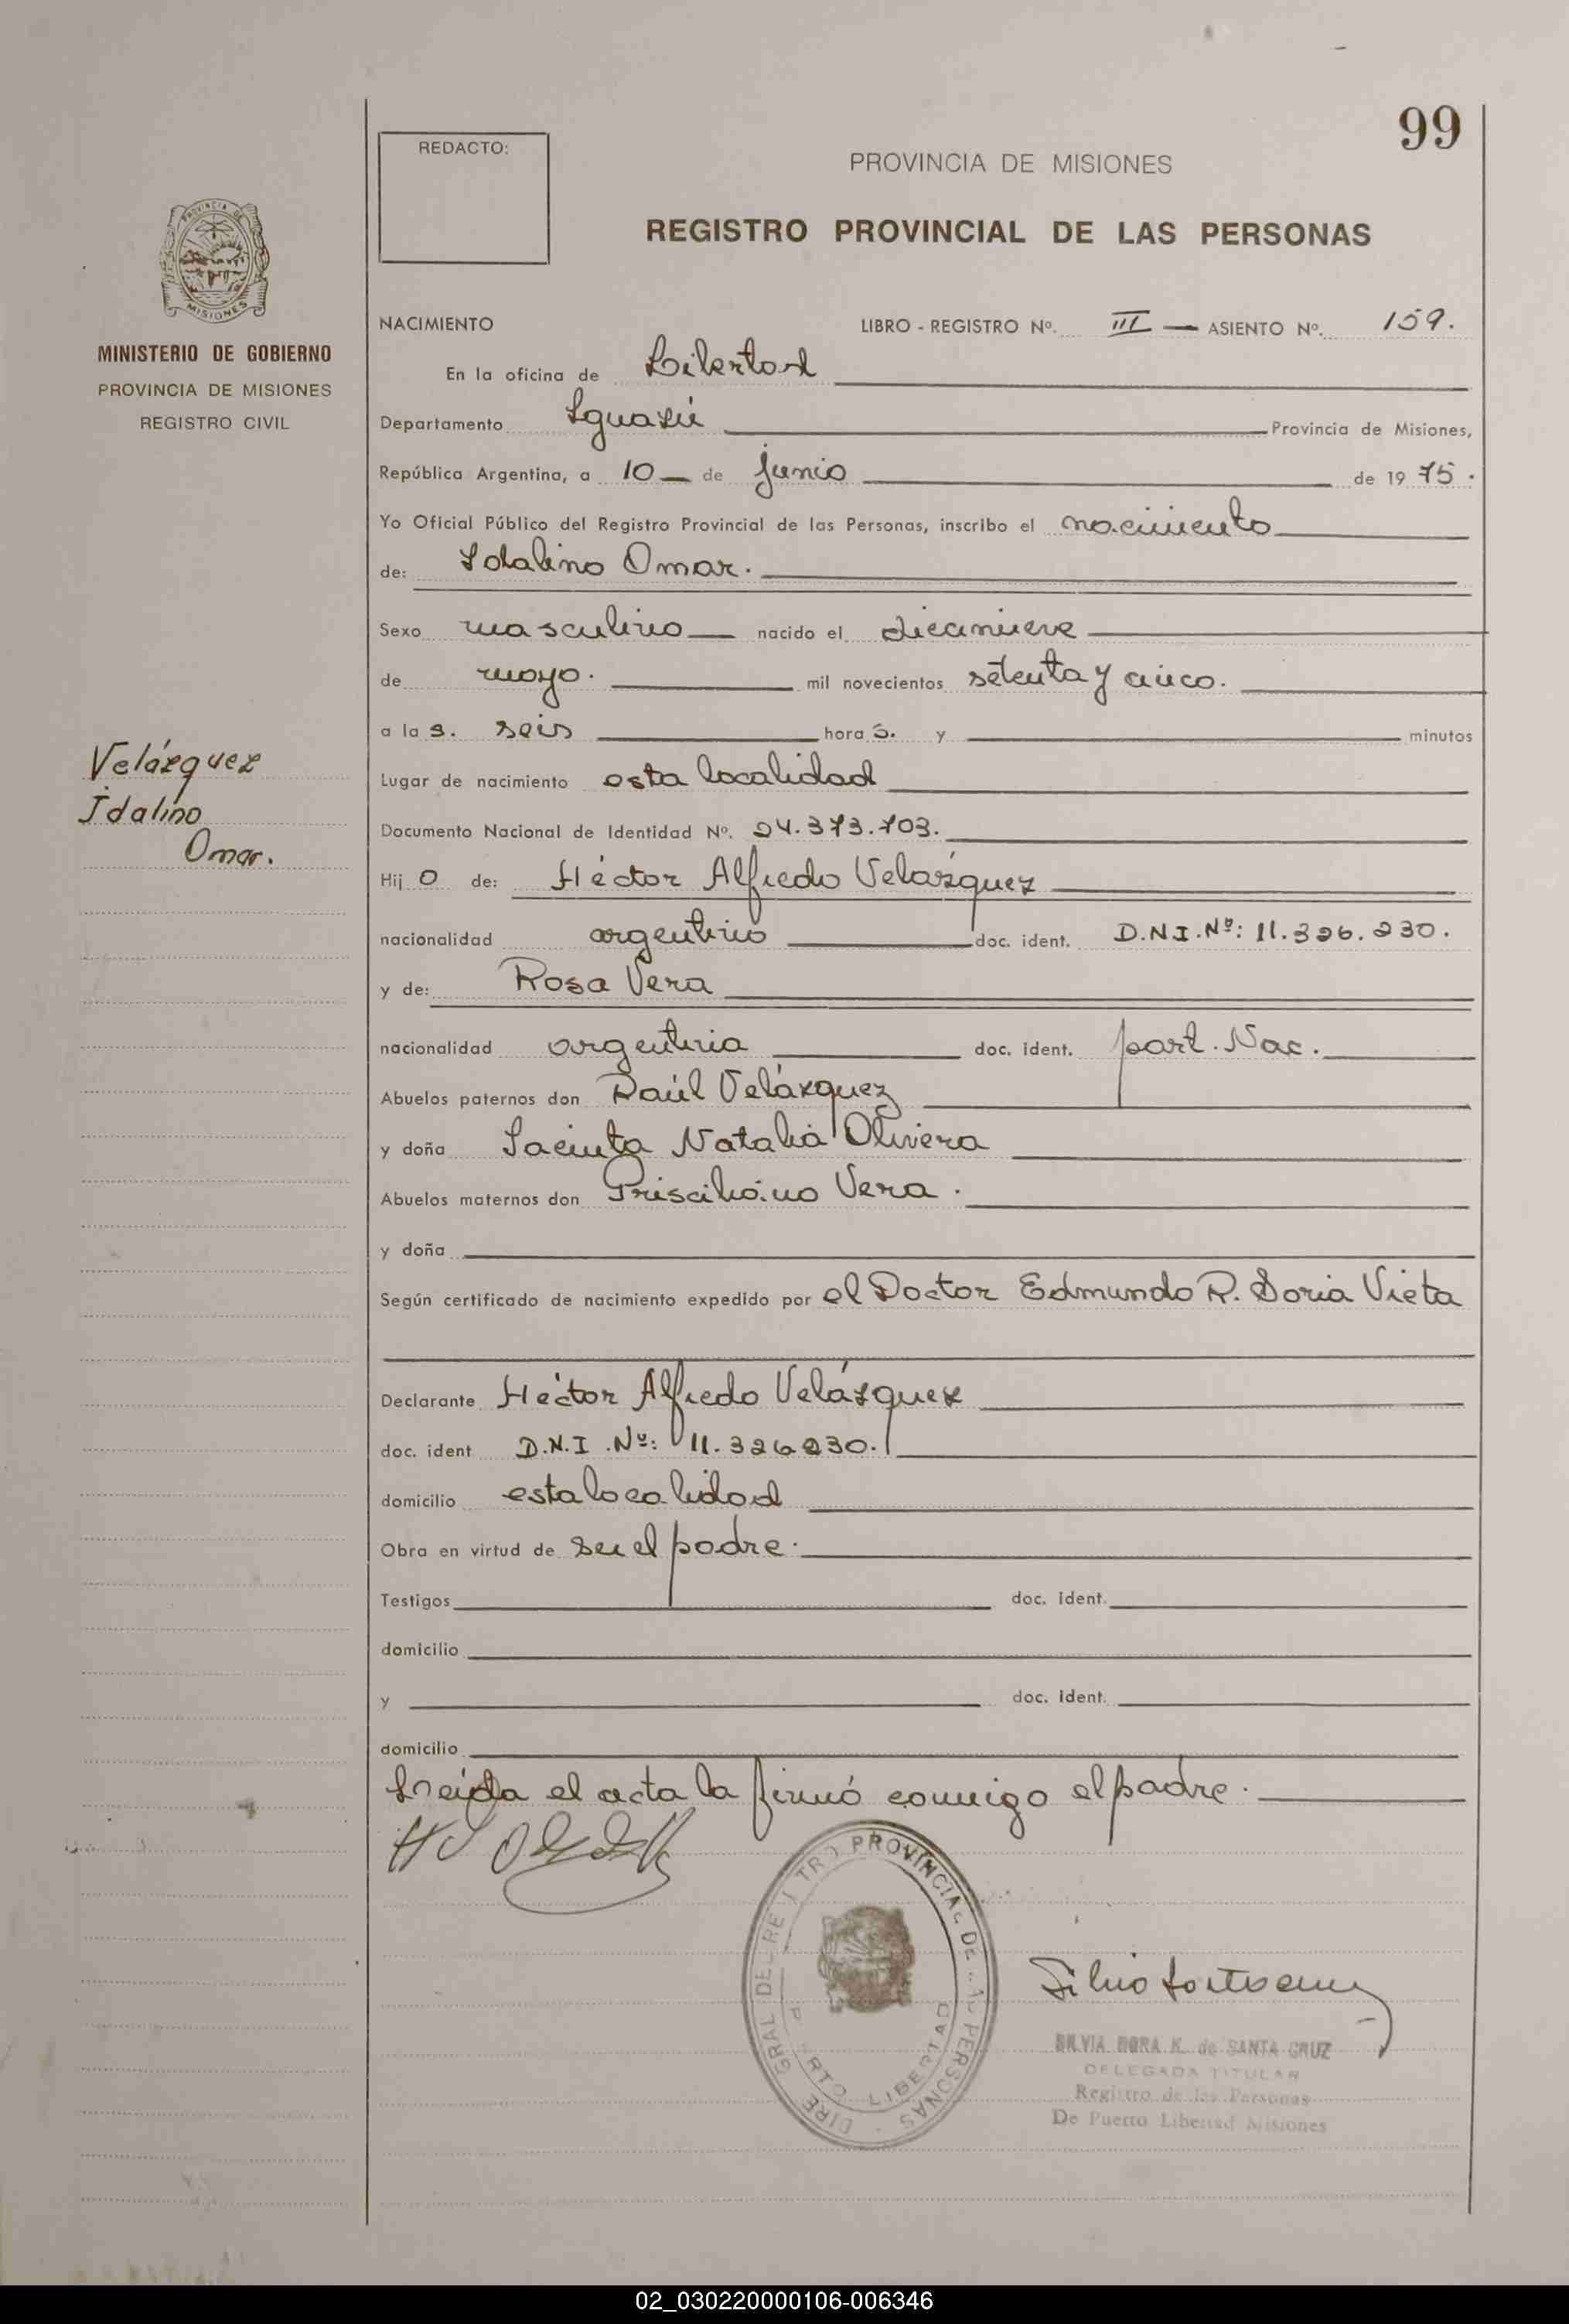 99
REDACTO:
PROVINCIA DE MISIONES
REGISTRO PROVINCIAL DE LAS PERSONAS
MISIONES
MINISTERIO DE GOBIERNO
PROVINCIA DE MISIONES
REGISTRO CIVIL
Velázquez
Idalino
Omar.
NACIMIENTO LIBRO - REGISTRO Nº. III — ASIENTO Nº. 159.
En la oficina de Libertad
Departamento Iguazú Provincia de Misiones,
República Argentina, a 10 — de junio de 1975.
Yo Oficial Público del Registro Provincial de las Personas, inscribo el nacimiento
de: Idalino Omar.
Sexo masculino nacido el diecinueve
de mayo. mil novecientos setenta y cinco.
a las. seis horas. y minutos
Lugar de nacimiento esta localidad
Documento Nacional de Identidad Nº. 24.373.703.
Hijo de: Héctor Alfredo Velázquez
nacionalidad argentino doc. ident. D.N.I. Nº: 11.326.230.
y de: Rosa Vera
nacionalidad argentina doc. ident. part. Nac.
Abuelos paternos don Raúl Velázquez
y doña Jacinta Natalia Olivera
Abuelos maternos don Prisciliano Vera.
y doña
Según certificado de nacimiento expedido por el Doctor Edmundo R. Soria Vieta
Declarante Héctor Alfredo Velázquez
doc. ident D.N.I. Nº: 11.326230.
domicilio esta localidad
Obra en virtud de ser el padre.
Testigos doc. ident.
domicilio
y doc. ident.
domicilio
Leída el acta la firmó conmigo el padre.
PROVINCIAL DE LAS PERSONAS
LIBERTAD
SILVIA DORA K. de SANTA CRUZ
DELEGADA TITULAR
Registro de las Personas
De Puerto Libertad Misiones
02_030220000106-006346